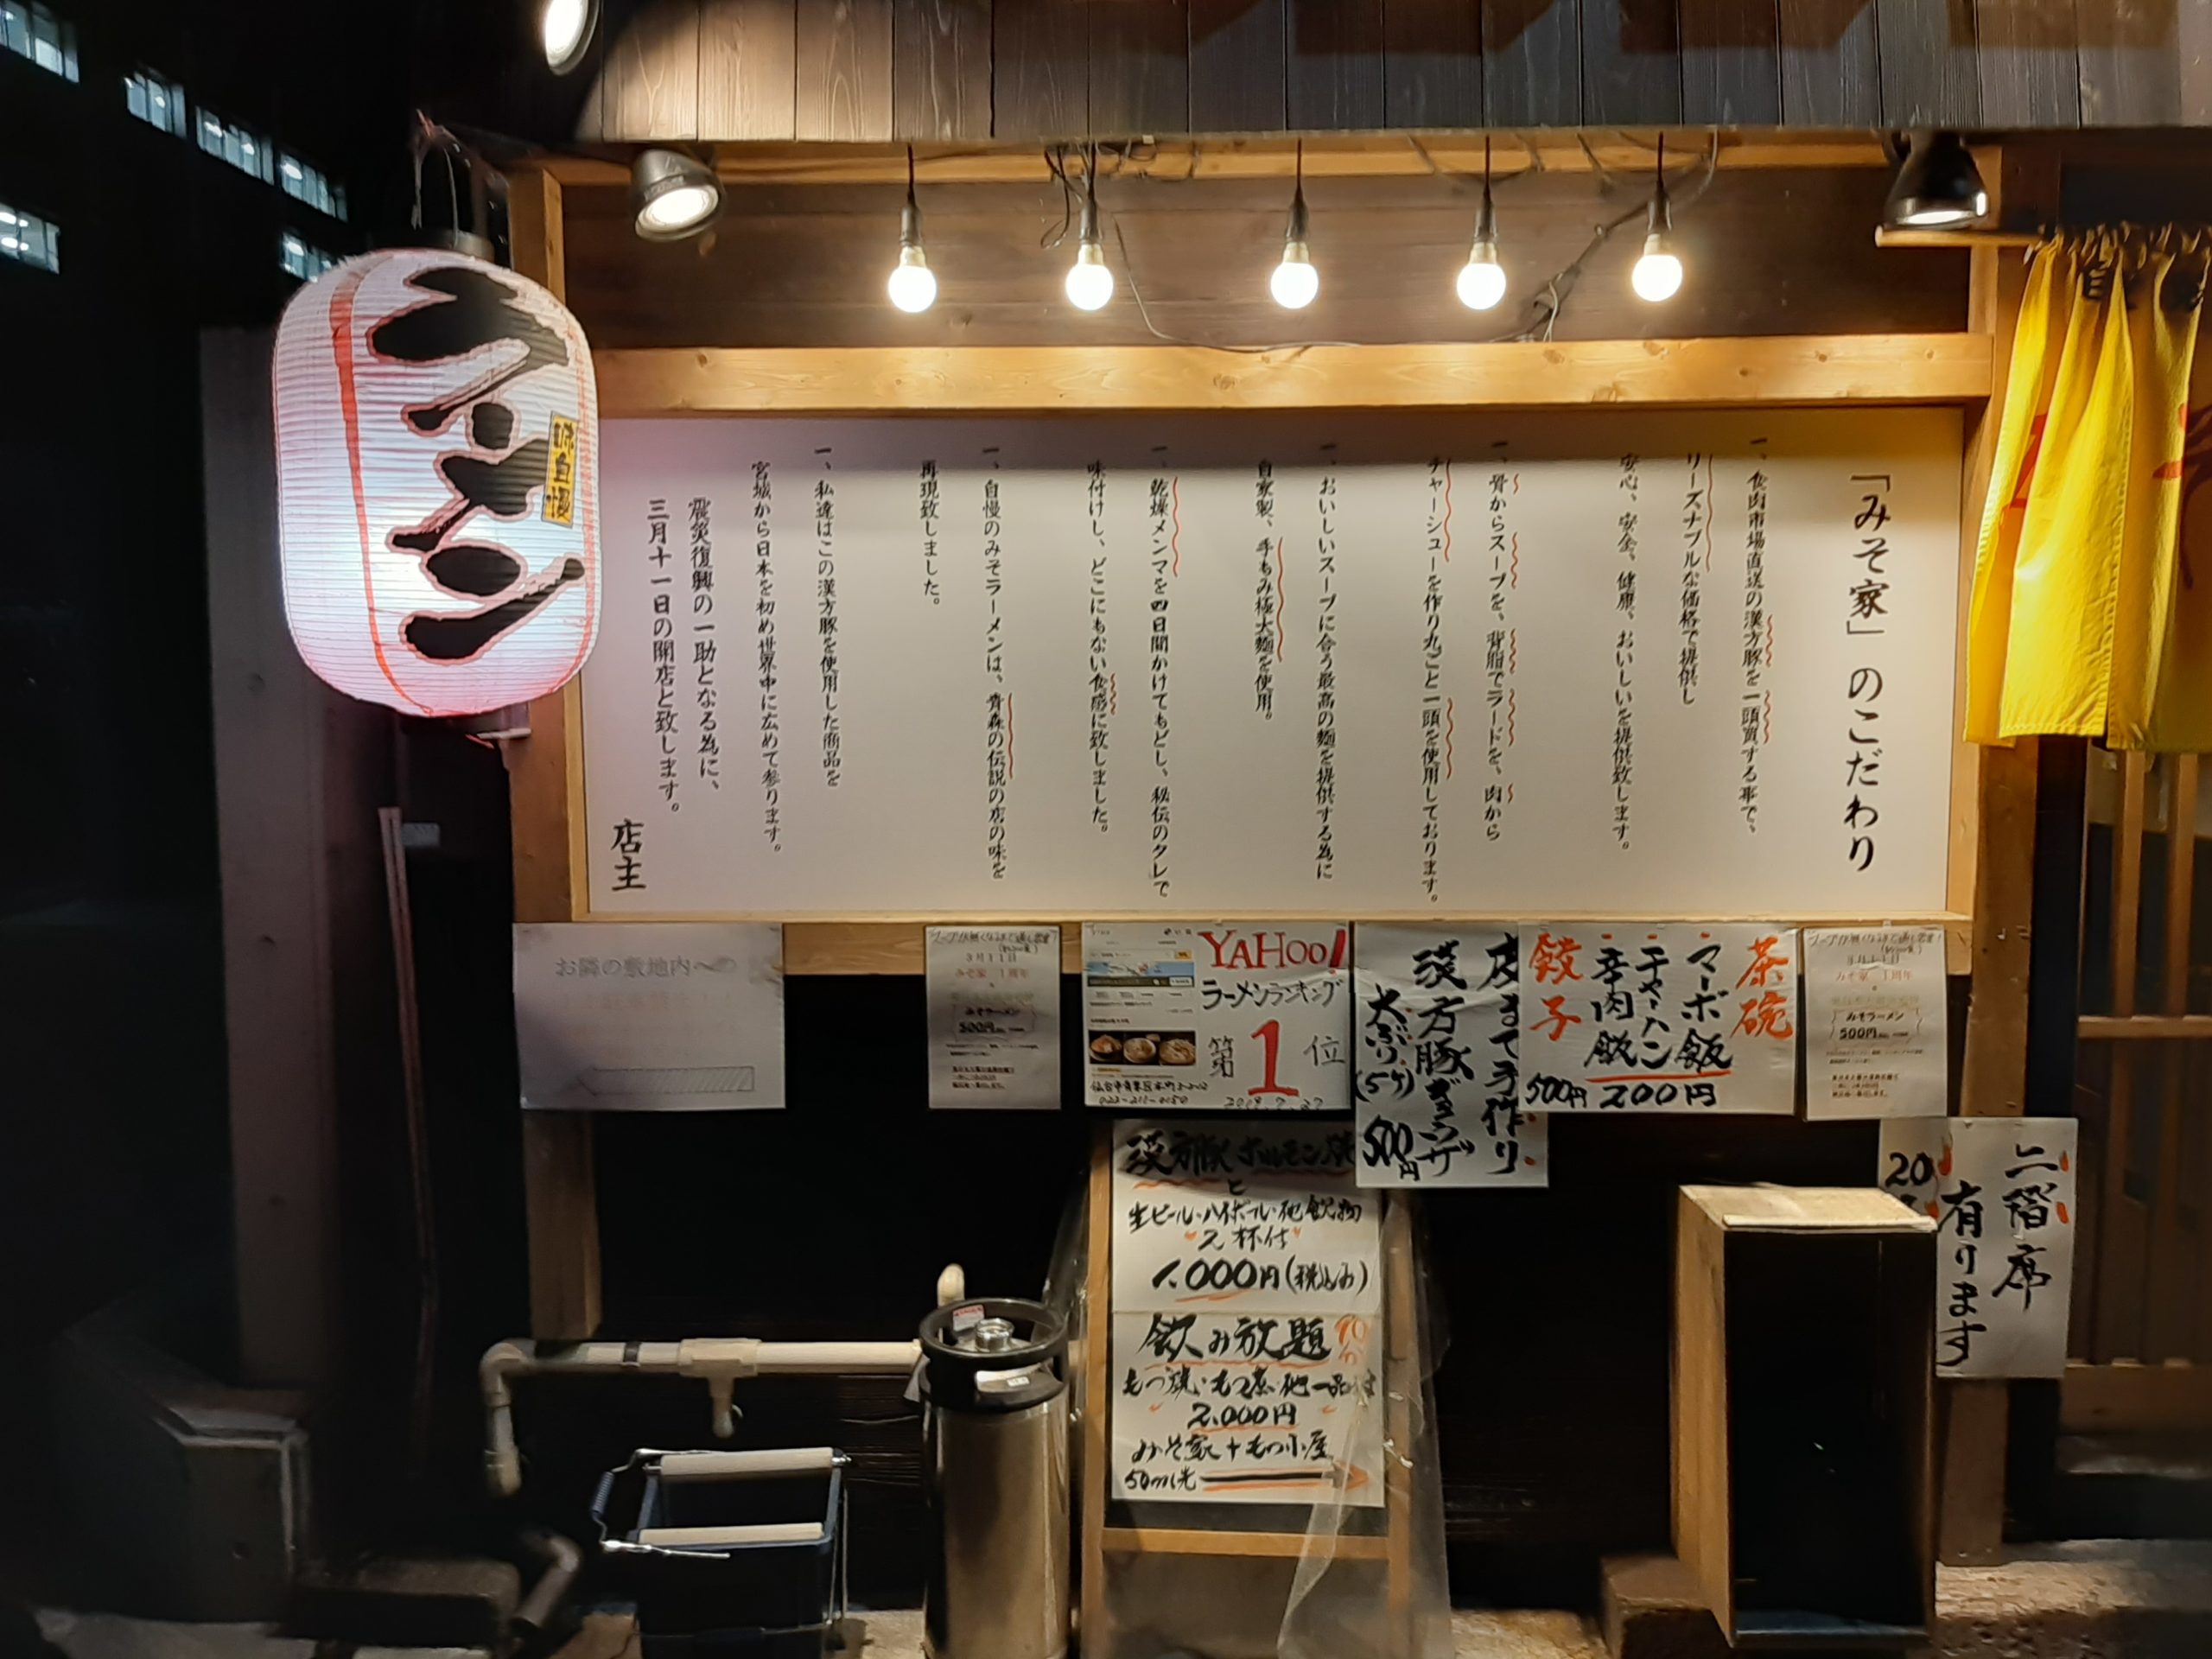 ラーメン
味自慢
「みそ家」のこだわり
一、食肉市場直送の漢方豚を一頭買する事で、
リーズナブルな価格で提供し
安心、安全、健康、おいしいを提供致します。
一、骨からスープを、背脂でラードを、肉から
チャーシューを作り丸ごと一頭を使用しております。
一、おいしいスープに合う最高の麺を提供する為に
自家製、手もみ極太麺を使用。
一、乾燥メンマを四日間かけてもどし、秘伝のタレで
味付けし、どこにもない食感に致しました。
一、自慢のみそラーメンは、青森の伝説の店の味を
再現致しました。
一、私達はこの漢方豚を使用した商品を
宮城から日本を初め世界中に広めて参ります。
震災復興の一助となる為に、
三月十一日の開店と致します。
店主
お隣の敷地内への
3月11日
みそ家 1周年
みそラーメン
500円
YAHOO!
ラーメンランキング
第1位
仙台市青葉区本町
皮まで手作り
漢方豚ぎょうザ
大ぶり(5ケ)
500円
茶碗
マーボ飯
チャーハン
辛肉飯
200円
餃子
500円
3月11日
みそ家 1周年
みそラーメン
500円
漢方豚ホルモン焼
と
生ビール・ハイボール・他飲物
2杯付
1.000円(税込み)
飲み放題
もつ焼・もつ煮・他一品付
2.000円
みそ家+もつ小屋
50m先
20
二階席
有ります